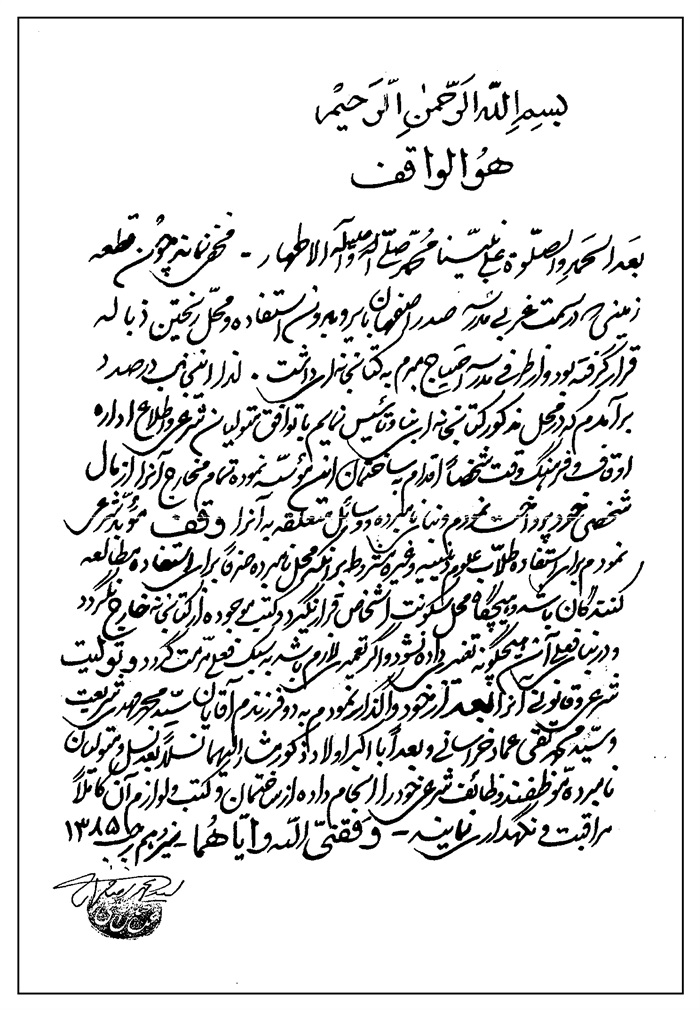 بسم الله الرحمن الرحیم
هو الواقف
بعد الحمد والصلوة علی نبینا محمد صلی الله علیه وآله الاطهار - مخفی نماند چون قطعه
زمینی در سمت غربی مدرسه صدر اصفهان بایر و بدون استفاده و محل ریختن ذباله
قرار گرفته بود و از طرفی مدرسه احتیاج مبرم به کتابخانه‌ای داشت . لذا اینجانب درصدد
برآمدم که در محل مذکور کتابخانه‌ای بنا و تأسیس نمایم با توافق متولیان شرعی و اطلاع اداره
اوقاف و فرهنگ وقت شخصاً اقدام به ساختمان این مؤسسه نموده تمام مخارج آنرا از مال
شخصی خود پرداخت نمودم و بنای نامبرده و وسائل متعلقه به آنرا وقف مؤبد شرعی
نمودم برای استفاده طلاب علوم دینیه و غیره مشروط بر اینکه محل نامبرده صرفاً برای استفاده مطالعه
کنندگان باشد و هیچگاه محل سکونت اشخاص قرار نگیرد و کتب موجوده از کتابخانه خارج نگردد
و در بنای فعلی آن هیچگونه تغییری داده نشود و اگر تعمیر لازم باشد به سبک فعلی مرمت گردد و تولیت
شرعی و قانونی آنرا بعد از خود واگذار نمودم به دو فرزندم آقایان سید محمد مهدی شریعت
و سید محمد تقی عماد خراسانی و بعداً با اکبر اولاد ذکور مشارالیهما نسلاً بعد نسل و متولیان
نامبرده موظفند وظائف شرعی خود را انجام داده از ساختمان و کتب و لوازم آن کاملاً
مراقبت و نگهداری نمایند - وفقنی الله و ایاهما - رجب ۱۳۸۵